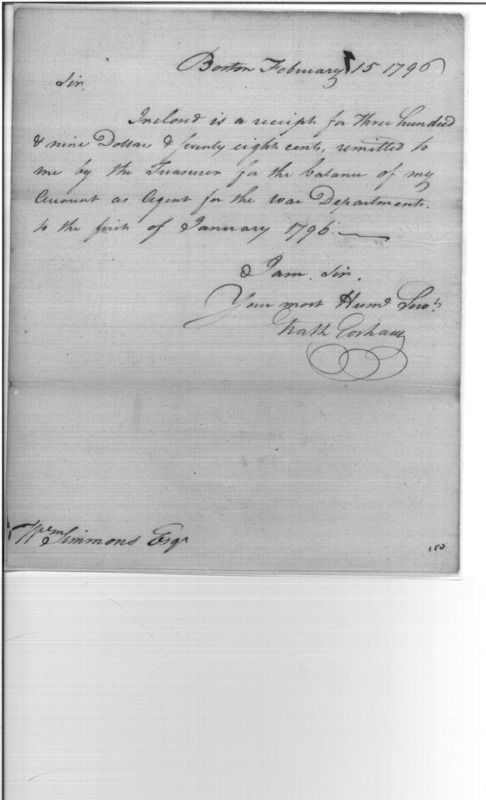 Boston February 15 1796
Sir.
Inclosd is a receipt for three hundred
& nine Dollars & Seventy eight cents, remitted to
me by the Treasurer for the balance of my
Account as Agent for the War Department.
to the first of January 1796.
I am Sir.
Your most Humb Servt
Nath Gorham
Wm Simmons Esqr